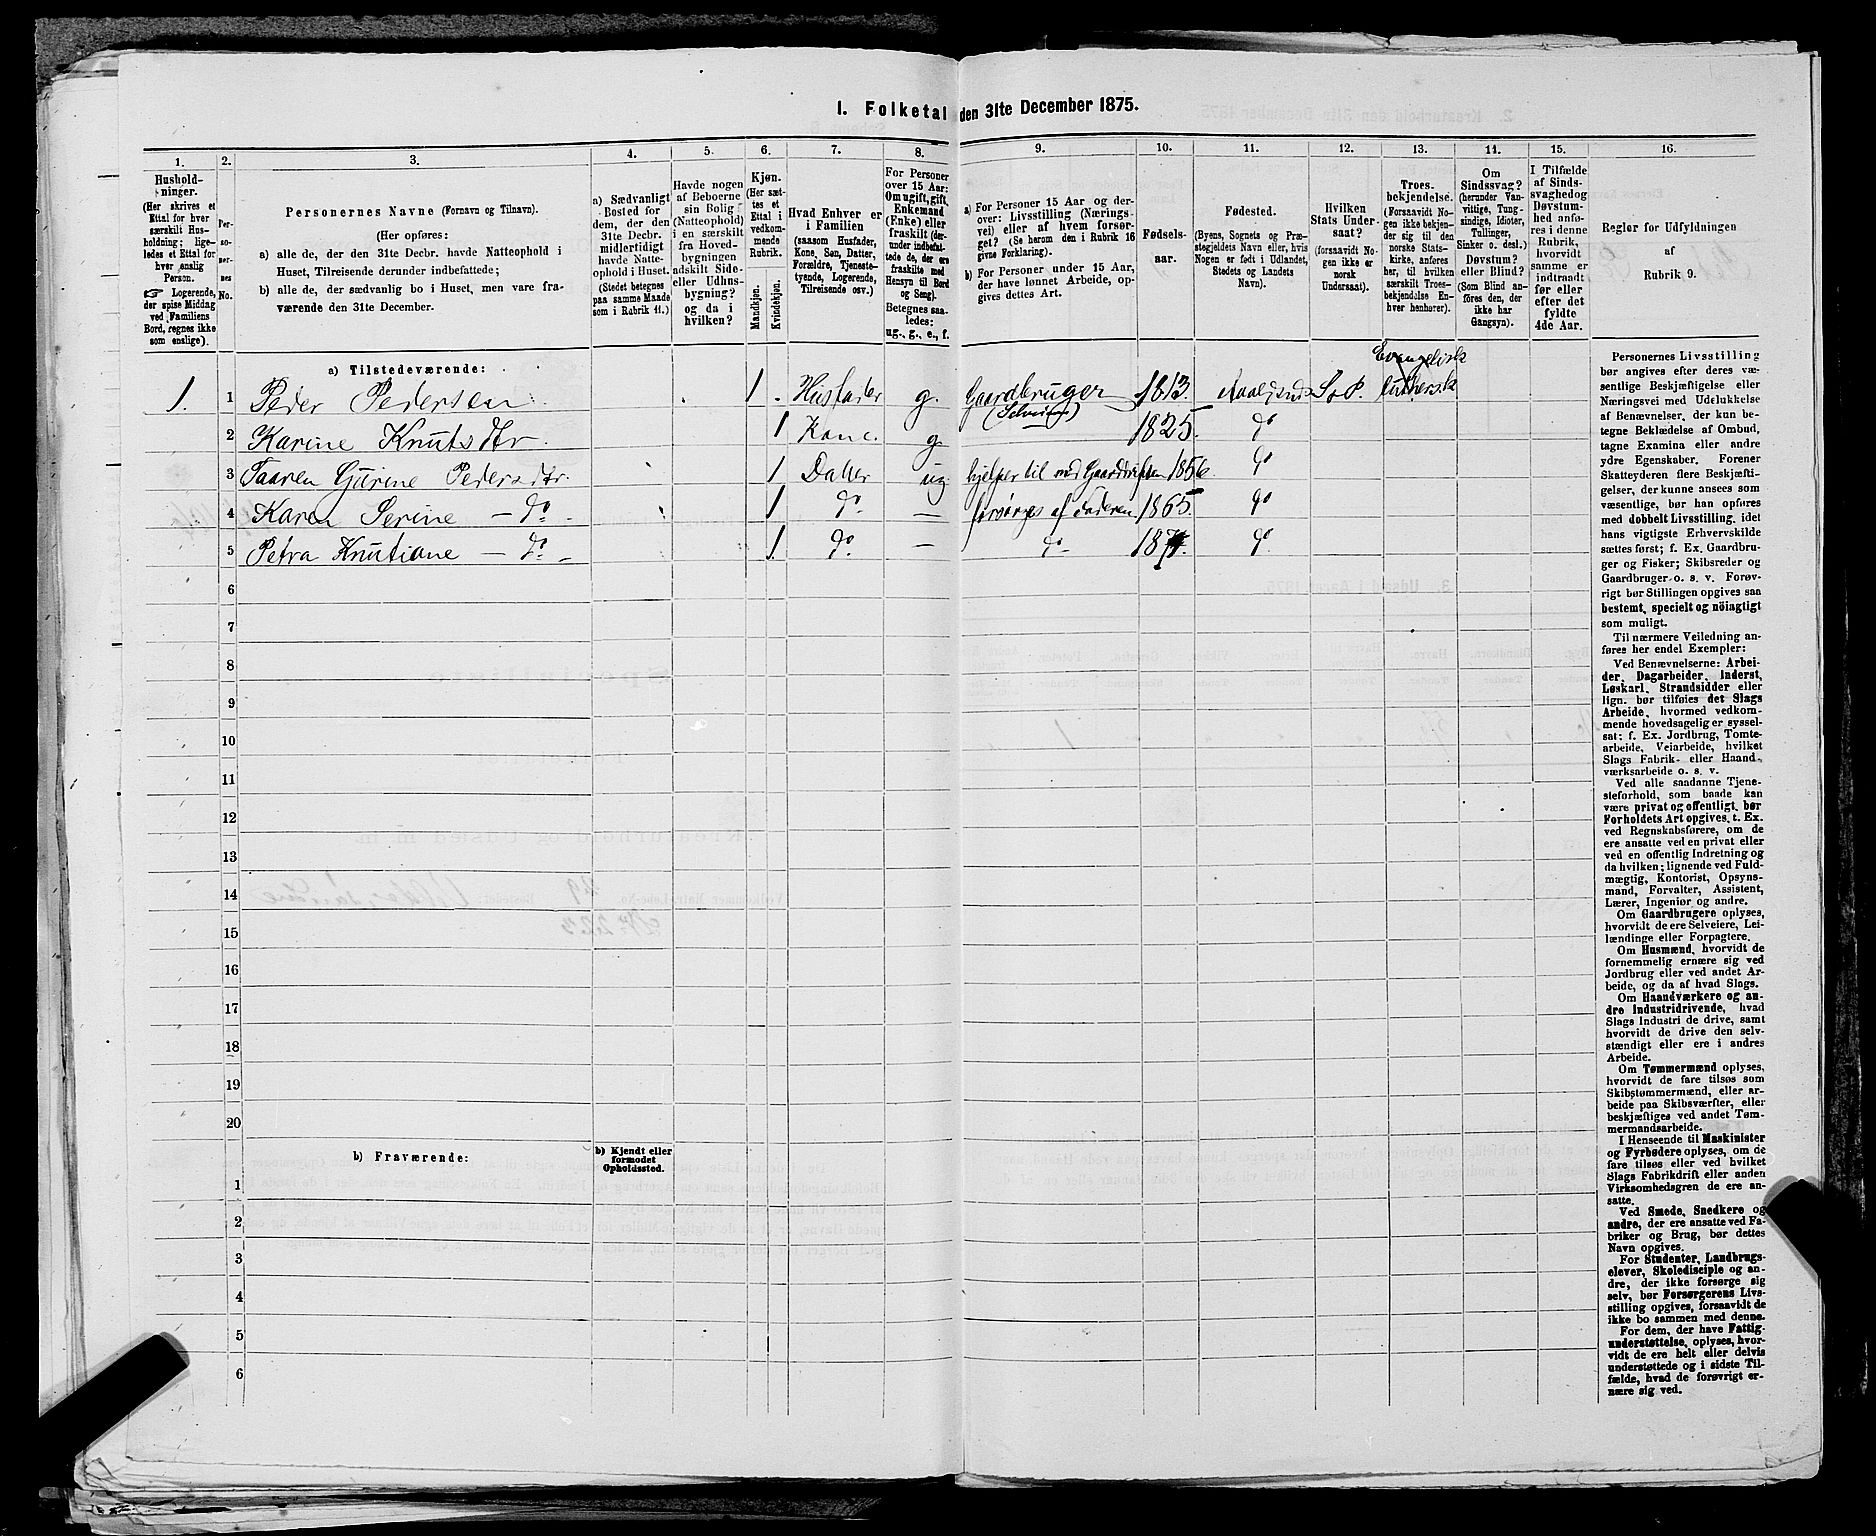 I. Folketal den 31te December 1875.
1.
Hushold-
ninger.
(Her skrives et
Ettal for hver
særskilt Hus-
holdning; lige-
ledes et Ettal for
hver enslig
Person.
☞ Logerende,
der spise Middag
ved Familiens
Bord, regnes ikke
som enslige).
2.
Per-
so-
ner-
nes
No.
3.
Personernes Navne (Fornavn og Tilnavn).
(Her opføres:
a) alle de, der den 31te Decbr. havde Natteophold i
Huset, Tilreisende derunder indbefattede;
b) alle de, der sædvanlig bo i Huset, men vare fra-
værende den 31te December.
4.
a) Sædvanligt
Bosted for
dem, der den
31te Decbr.
midlertidigt
havde Natte-
ophold i Huset.
(Stedet betegnes
paa samme Maade
som i Rubrik 11.)
5.
Havde nogen
af Beboerne
sin Bolig
(Natteophold)
i en særskilt
fra Hoved-
bygningen
adskilt Side-
eller Udhus-
bygning?
og da i
hvilken?
6.
Kjøn.
(Her sæt-
tes et
Ettal i
vedkom-
mende
Rubrik.
Mandkjøn.
Kvindekjøn.
7.
Hvad Enhver er
i Familien
(saasom Husfader,
Kone, Søn, Datter,
Forældre, Tjeneste-
tyende, Logerende,
Tilreisende osv.)
8.
For Personer
over 15 Aar:
Om ugift, gift,
Enkemand
(Enke) eller
fraskilt (der-
under indbefat-
tede de, der ere
fraskilte med
Hensyn til Bord
og Seng).
Betegnes saa-
ledes:
ug., g., e., f.
9.
a) For Personer 15 Aar og der-
over: Livsstilling (Nærings-
vei) eller af hvem forsør-
get? (Se herom den i Rubrik 16
givne Forklaring).
b) For Personer under 15 Aar,
der have lønnet Arbeide, op-
gives dettes Art.
10.
Fødsels-
aar.
11.
Fødested.
(Byens, Sognets og Præ-
stegjeldets Navn eller, hvis
Nogen er født i Udlandet,
Stedets og Landets
Navn).
12.
Hvilken
Stats Under-
saat?
(forsaavidt No-
gen ikke er
norsk
Undersaat).
13.
Troes-
bekjendelse.
(Forsaavidt No-
gen ikke bekjen-
der sig til den
norske Stats-
kirke, anføres
her, til hvilken
særskilt Troes-
bekjendelse En-
hver henhører).
14.
Om
Sindssvag?
(herunder Van-
vittige, Tung-
sindige, Idioter,
Tullinger,
Sinker o. desl.)
Døvstum?
eller Blind?
(Som Blind an-
føres den, der
ikke har
Gangsyn).
15.
I Tilfælde
af Sinds-
svaghed og
Døvstum-
hed anfø-
res i denne
Rubrik,
hvorvidt
samme er
indtraadt
før eller
efter det
fyldte
4de Aar.
16.
Regler for Udfyldningen
af
Rubrik 9.
a) Tilstedeværende:
Evangelisk
1. 1 Peder Pedersen 1 . Husfader g. Gaardbruger 1813. S. P. luthersk
(Selveier)
2 Karine Knutsdtr. 1 Kone. g 1825. do
3 Taaren Gurine Pedersdtr. 1 Datter ug. hjelper til med Gaardsdriften 1856 do
4 Karen Serine — do — 1 do. — forsørges af Faderen 1865. do
5 Petra Knutiane — do — 1. do. — do — do
6
7
8
9
10
11
12
13
14
15
16
17
18
19
20
b) Fraværende:
b) Kjendt eller
formodet
Opholdssted.
1
2
3
4
5
6
Personernes Livsstilling
bør angives efter deres væ-
sentlige Beskjæftigelse eller
Næringsvei med Udelukkelse
af Benævnelser, der kun be-
tegne Beklædelse af Ombud,
tagne Examina eller andre
ydre Egenskaber. Forener
Skatteyderen flere Beskjæfti-
gelser, der kunne ansees som
væsentlige, bør han opføres
med dobbelt Livsstilling, idet
hans vigtigste Erhvervskilde
sættes først; f. Ex. Gaardbru-
ger og Fisker; Skibsreder og
Gaardbruger o. s. v. Forøv-
rigt bør Stillingen opgives saa
bestemt, specielt og nöiagtigt
som muligt.
Til nærmere Veiledning an-
føres her endel Exempler:
Ved Benævnelserne: Arbei-
der, Dagarbeider, Inderst,
Løskarl, Strandsidder eller
lign. bør tilføies det Slags
Arbeide, hvormed vedkom-
mende hovedsagelig er syssel-
sat; f. Ex. Jordbrug, Tomte-
arbeide, Veiarbeide, hvilket
Slags Fabrik- eller Haand-
værksarbeide o. s. v.
Ved alle saadanne Tjene-
steforhold, som baade kan
være privat og offentligt, bør
Forholdets Art opgives, t. Ex.
ved Regnskabsførere, om de
ere ansatte ved en privat eller
ved en offentlig Indretning og
da hvilken; lignende ved Fuld-
mægtig, Kontorist, Opsyns-
mand, Forvalter, Assistent,
Lærer, Ingeniør og andre.
Om Gaardbrugere oplyses,
hvorvidt de ere Selveiere, Lei-
lændinge eller Forpagtere.
Om Husmænd, hvorvidt de
fornemmelig ernære sig ved
Jordbrug eller ved andet Ar-
beide, og da af hvad Slags.
Om Haandværkere og an-
dre Industridrivende, hvad
Slags Industri de drive, samt
hvorvidt de drive den selv-
stændigt eller ere i andres
Arbeide.
Om Tømmermænd oplyses,
hvorvidt de fare tilsøs som
Skibstømmermænd, eller ar-
beide paa Skibsværfter, eller
beskjæftiges ved andet Tøm-
mermandsarbeide.
I Henseende til Maskinister
og Fyrbødere oplyses, om de
fare tilsøs eller ved hvilket
Slags Fabrikdrift eller anden
Virksomhedsgren de ere an-
satte.
Ved Smede, Snedkere og
andre, der ere ansatte ved Fa-
briker og Brug, bør dettes
Navn opgives.
For Studenter, Landbrugs-
elever, Skoledisciple og an-
dre, der ikke forsørge sig
selv, bør Forsørgerens Livs-
stilling opgives, forsaavidt de
ikke bo sammen med denne.
For dem, der have Fattig-
understøttelse, oplyses, hvor-
vidt de ere helt eller delvis
understøttede og i sidste Til-
fælde, hvad de forøvrigt er-
nære sig ved.